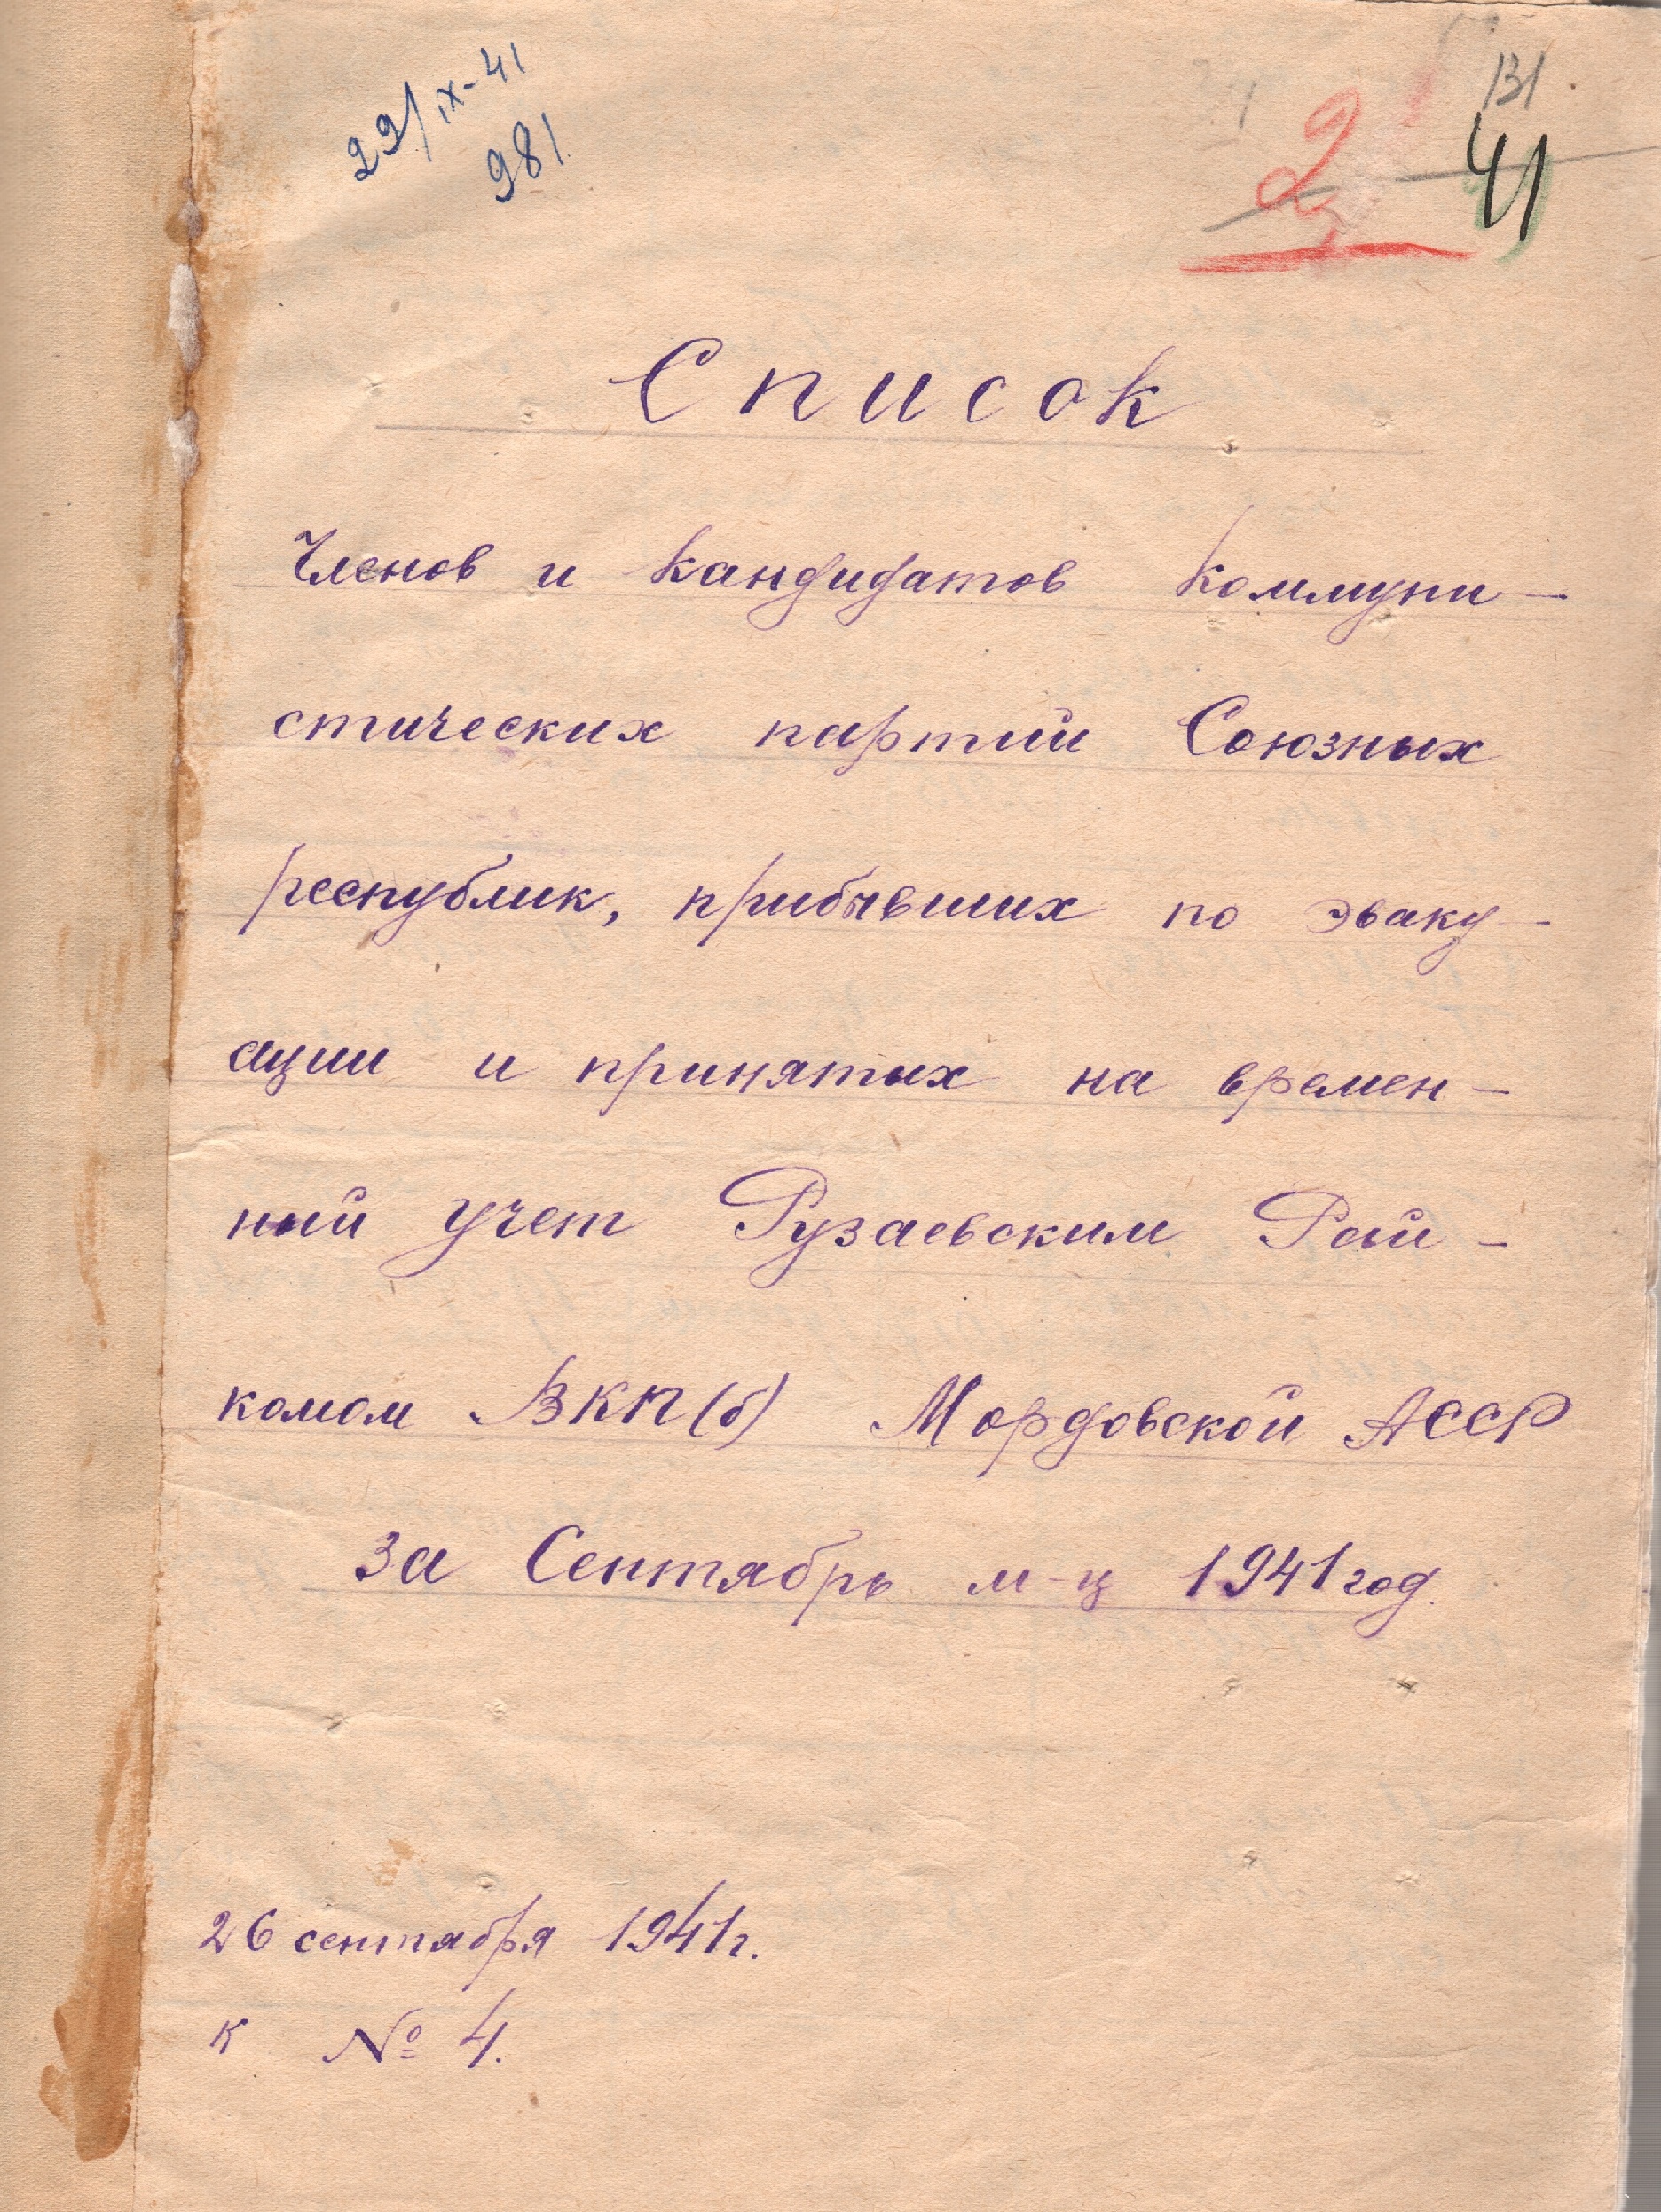 29/IX-41
981
131
2
41
Список
Членов и кандидатов Коммуни-
стических партий Союзных
республик, прибывших по эваку-
ации и принятых на времен-
ный учет Рузаевским Рай-
комом ВКП(б) Мордовской АССР
за Сентябрь м-ц 1941 год.
26 сентября 1941 г.
к № 4.